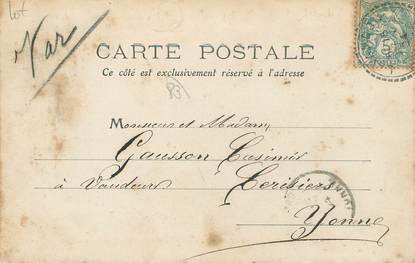 Lot
Var
CARTE POSTALE
Ce côté est exclusivement réservé à l'adresse
83
Monsieur et Madame
Gausson Casimir
à Vaudeurs Cerisiers
Yonne